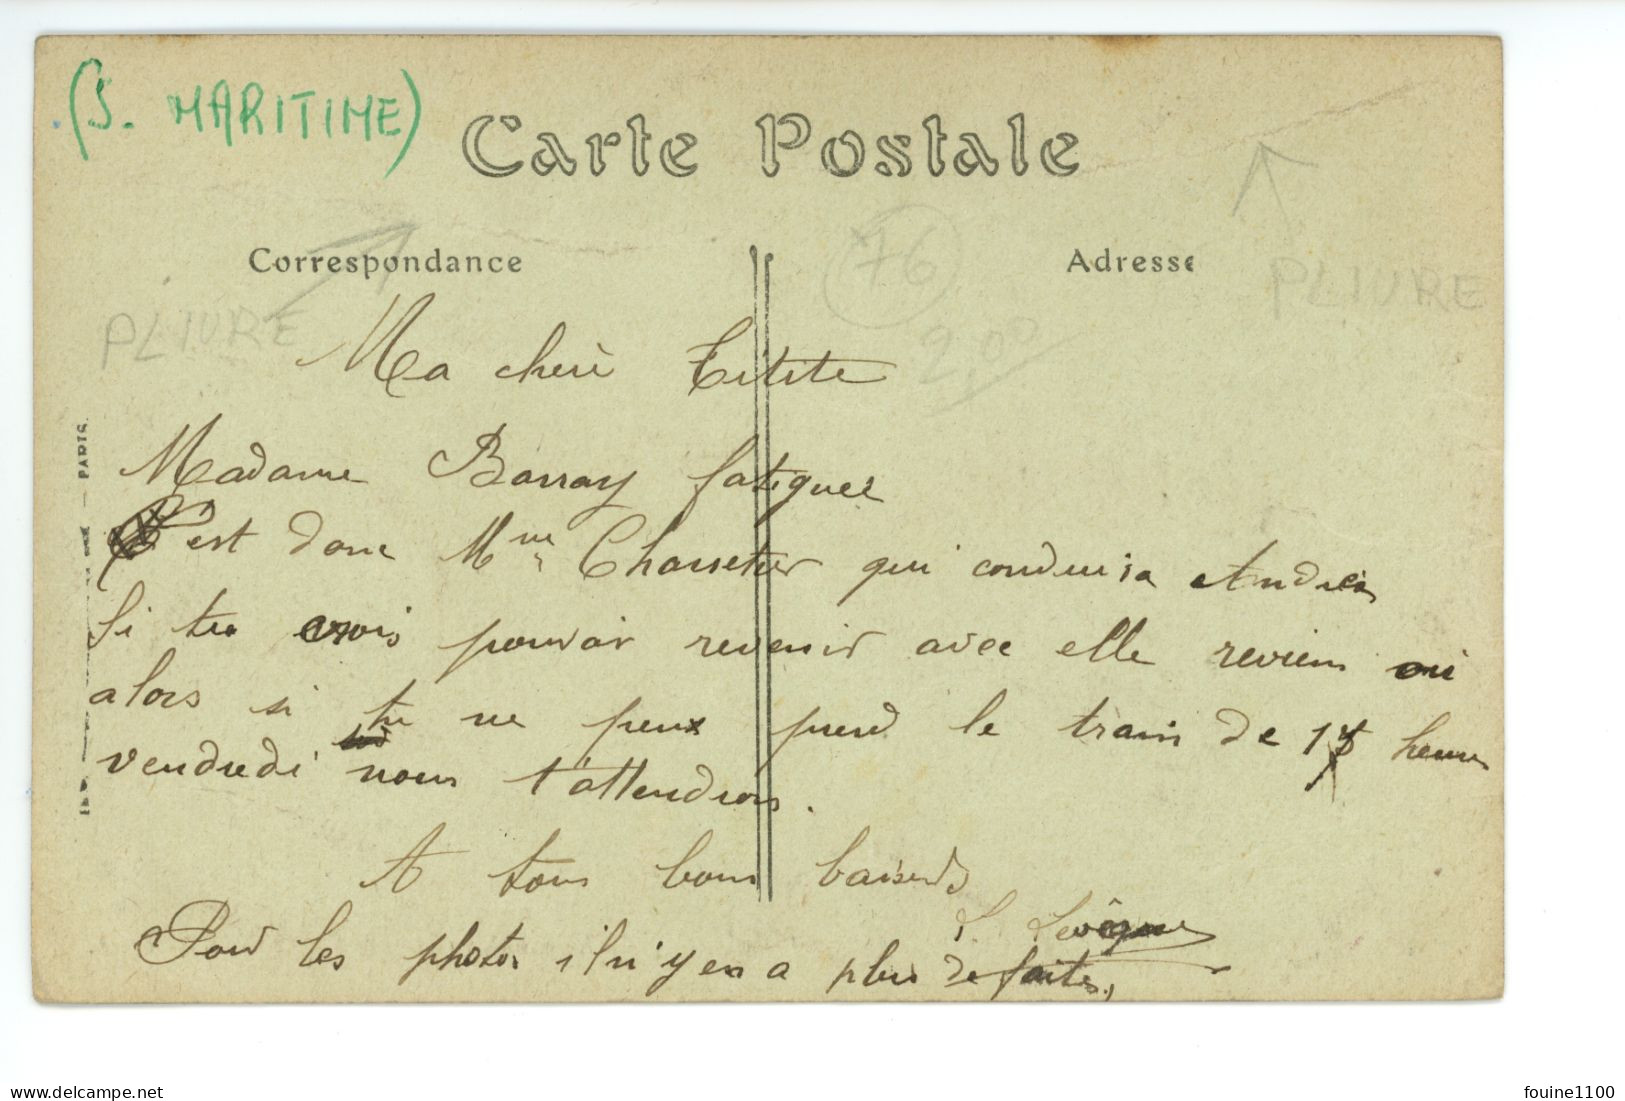 (S. MARITIME)
Carte Postale
Correspondance
Adresse
76
PLIURE
PLIURE
200
PARIS
Ma cherè Titite
Madame Barray fatiguée
C'est donc Mme Chaussetier qui conduira Andrée
Si tu crois pouvoir revenir avec elle reviens
alors si tu ne peux prend le train de 17 heures
vendredi nous t'attendrons.
A tous bons baisers
L. Levêque
Pour les photos il n'y en a plus de faites.
delcampe.net
fouine1100